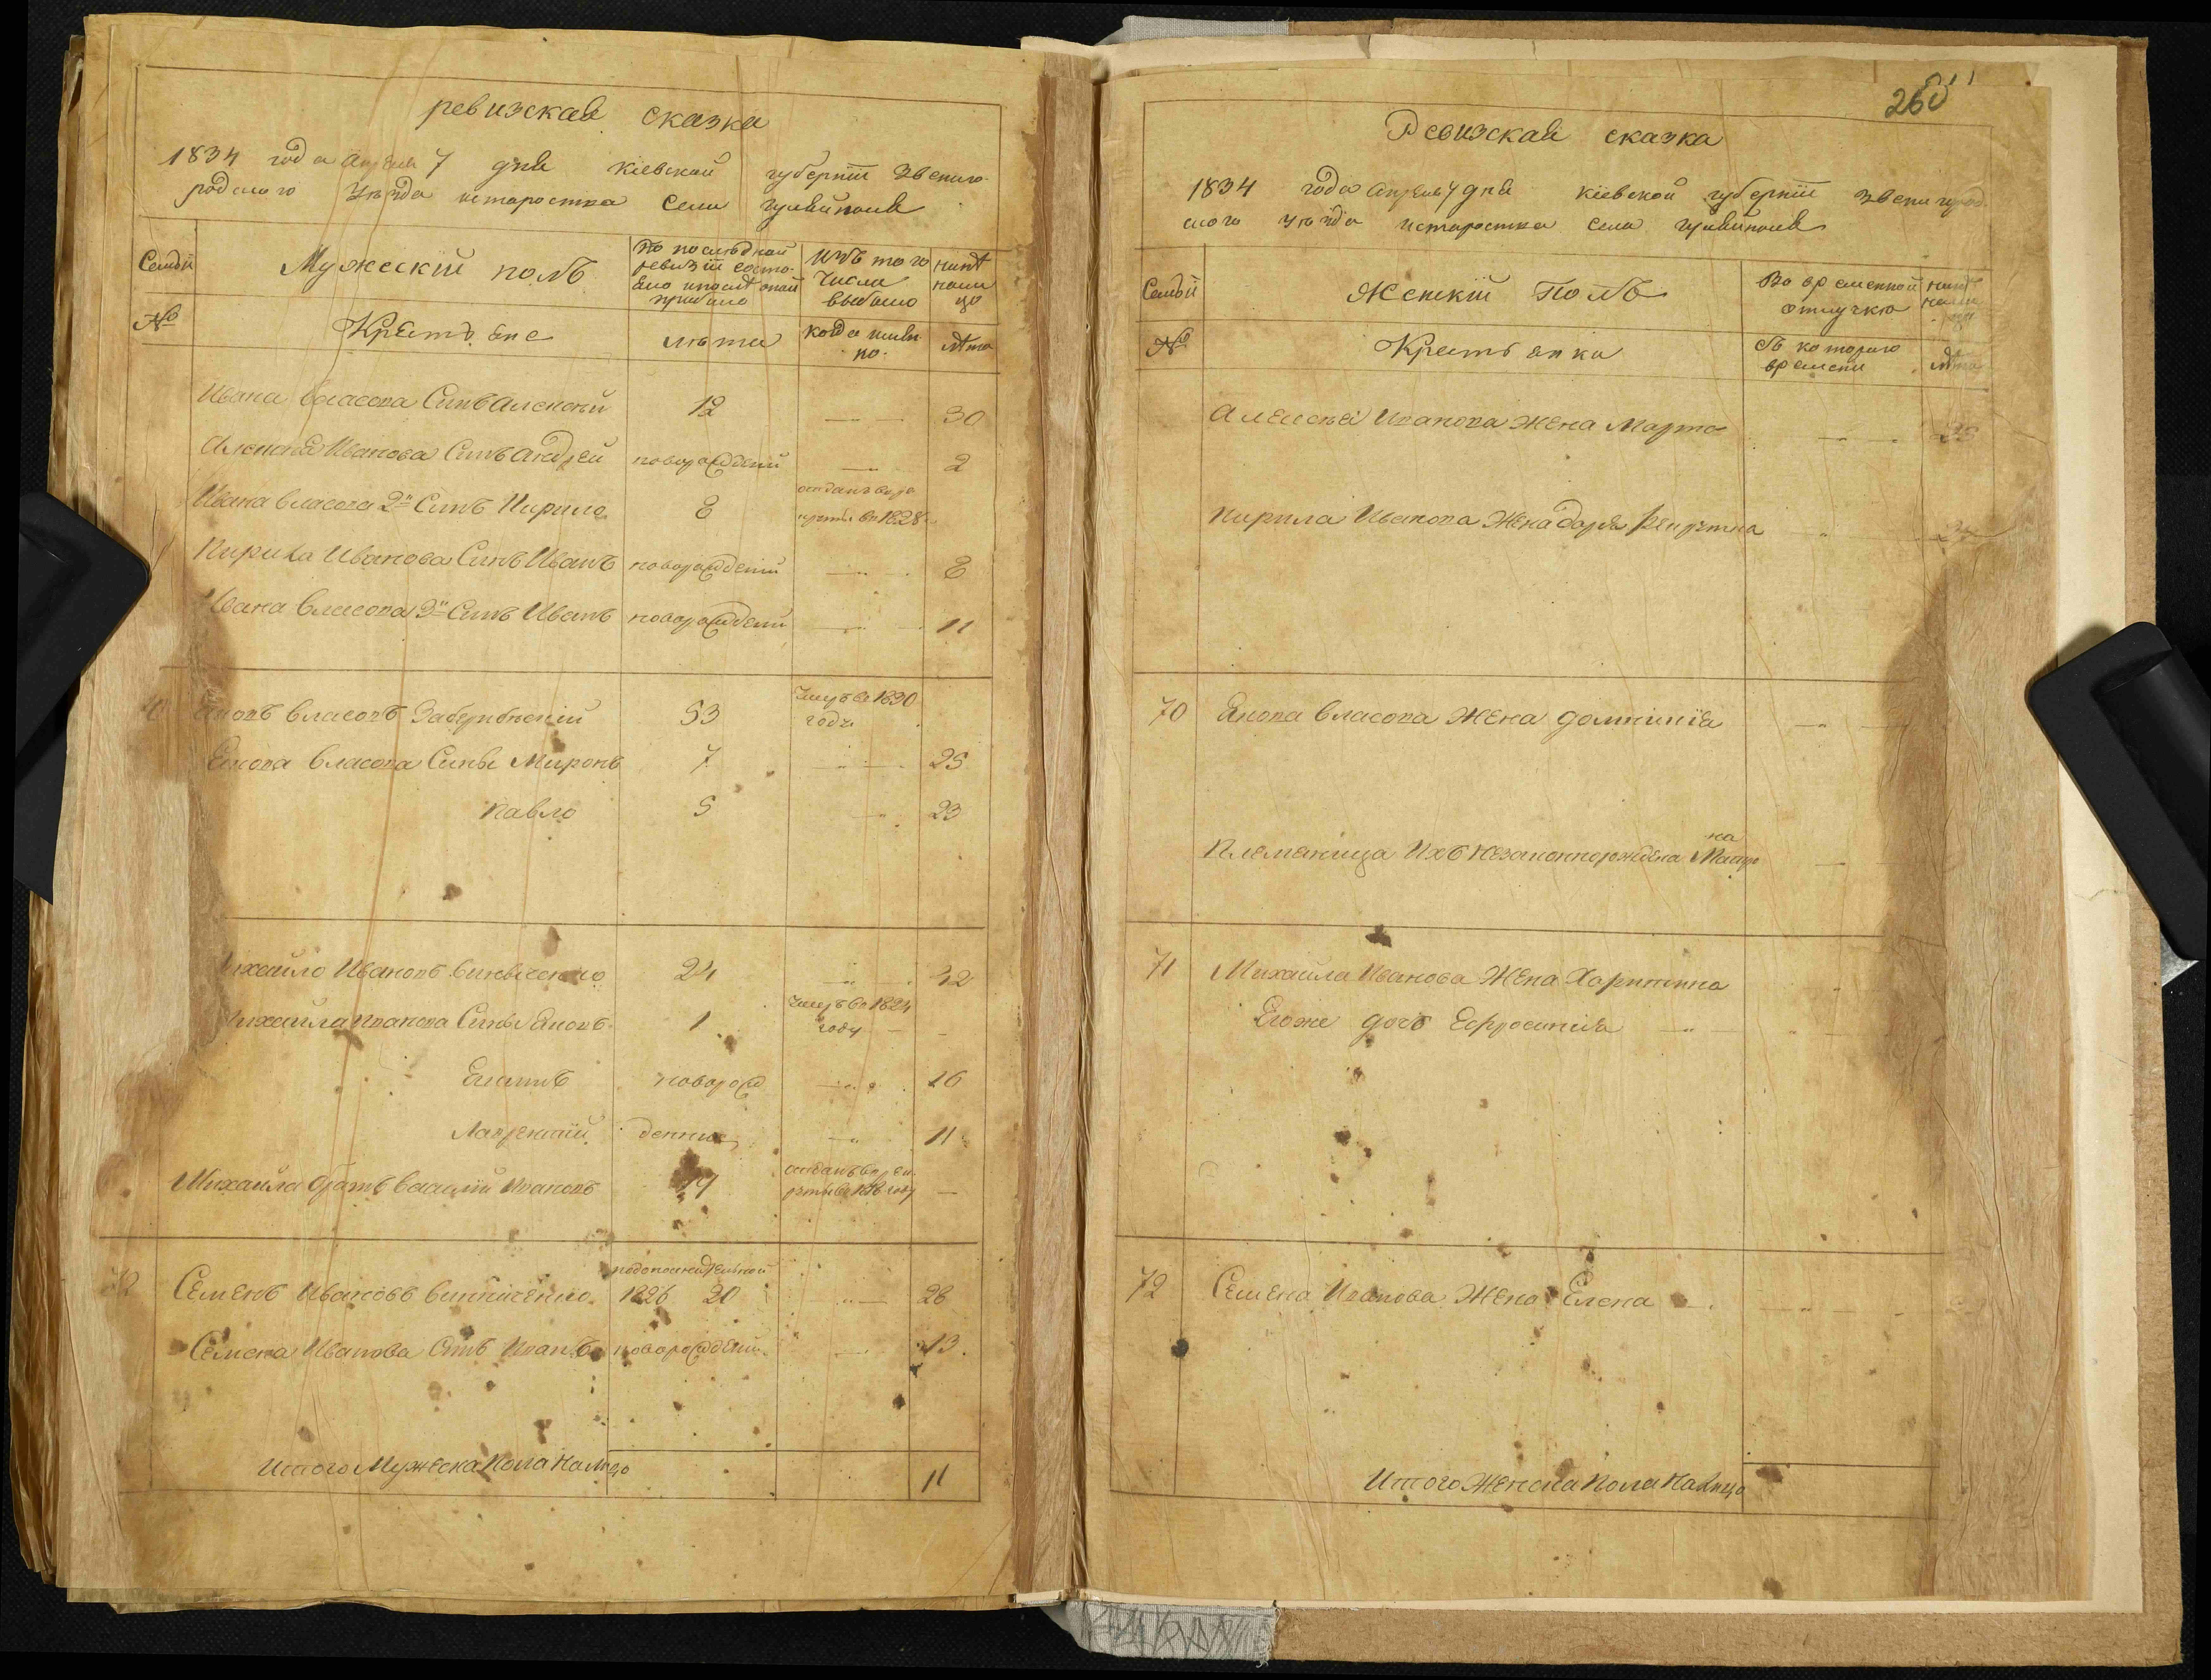 ревизская сказка
1834 года Апреля 7 дня Кіевской губерніи Звениго-
родского уѣзда староства села
Семьи
Мужескій полъ
По последней ревизіи состо-
яло и после оной прибыло
Изъ того числа выбыло
нинѣ на лицо
№
Крестьяне
лѣта
когда имянно
лѣта
Ивана Власова Синъ Алексѣй 12 — 30
Алексѣя Иванова Синъ Андрей новорожденій — 2
Ивана Власова 2й Синъ Кирило 8 отданъ в ре
круты в 1828
Кирила Иванова Синъ Иванъ новорожденій — 8
Ивана Власова 3й Синъ Иванъ новорожденій — 11
Яковъ Власовъ 53 Умеръ в 1830
году
Якова Власова Сины Миронъ 7 — 25
Павло 5 — 23
Михайло Ивановъ Винниченко 24 — 42
Михайла Иванова Сины Яковъ 1 Умеръ в 1824
году —
Игнатъ новорож — 16
Лаврентій денние — 11
Михайла братъ Василій Ивановъ 19 отданъ в рек
руты в году —
72 Семенъ Ивановъ Винниченко 1826 20 — 28
Семена Иванова Синъ Иванъ новорожденій — 13
Итого Мужеска Пола На лицо 11
260
Ревизская сказка
1834 года Апреля 7 дня Кіевской губерніи Звенигород
ского уѣзда староства села
Семьи
Женскій Полъ
Во временной отлучкѣ
нинѣ на лицо
№
Крестьянки
Съ которого времени
лѣта
Алексѣя Иванова Жена Марта — 25
Кирила Иванова Жена Дарья Рекрутка
70 Якова Власова Жена Домникія —
на
Племеница Ихъ Незаконнорждена Матро —
71 Михайла Иванова Жена Харитина
Егоже дочь Ефросинія —
72 Семена Иванова Жена Елена —
Итого Женска Пола На Лицо